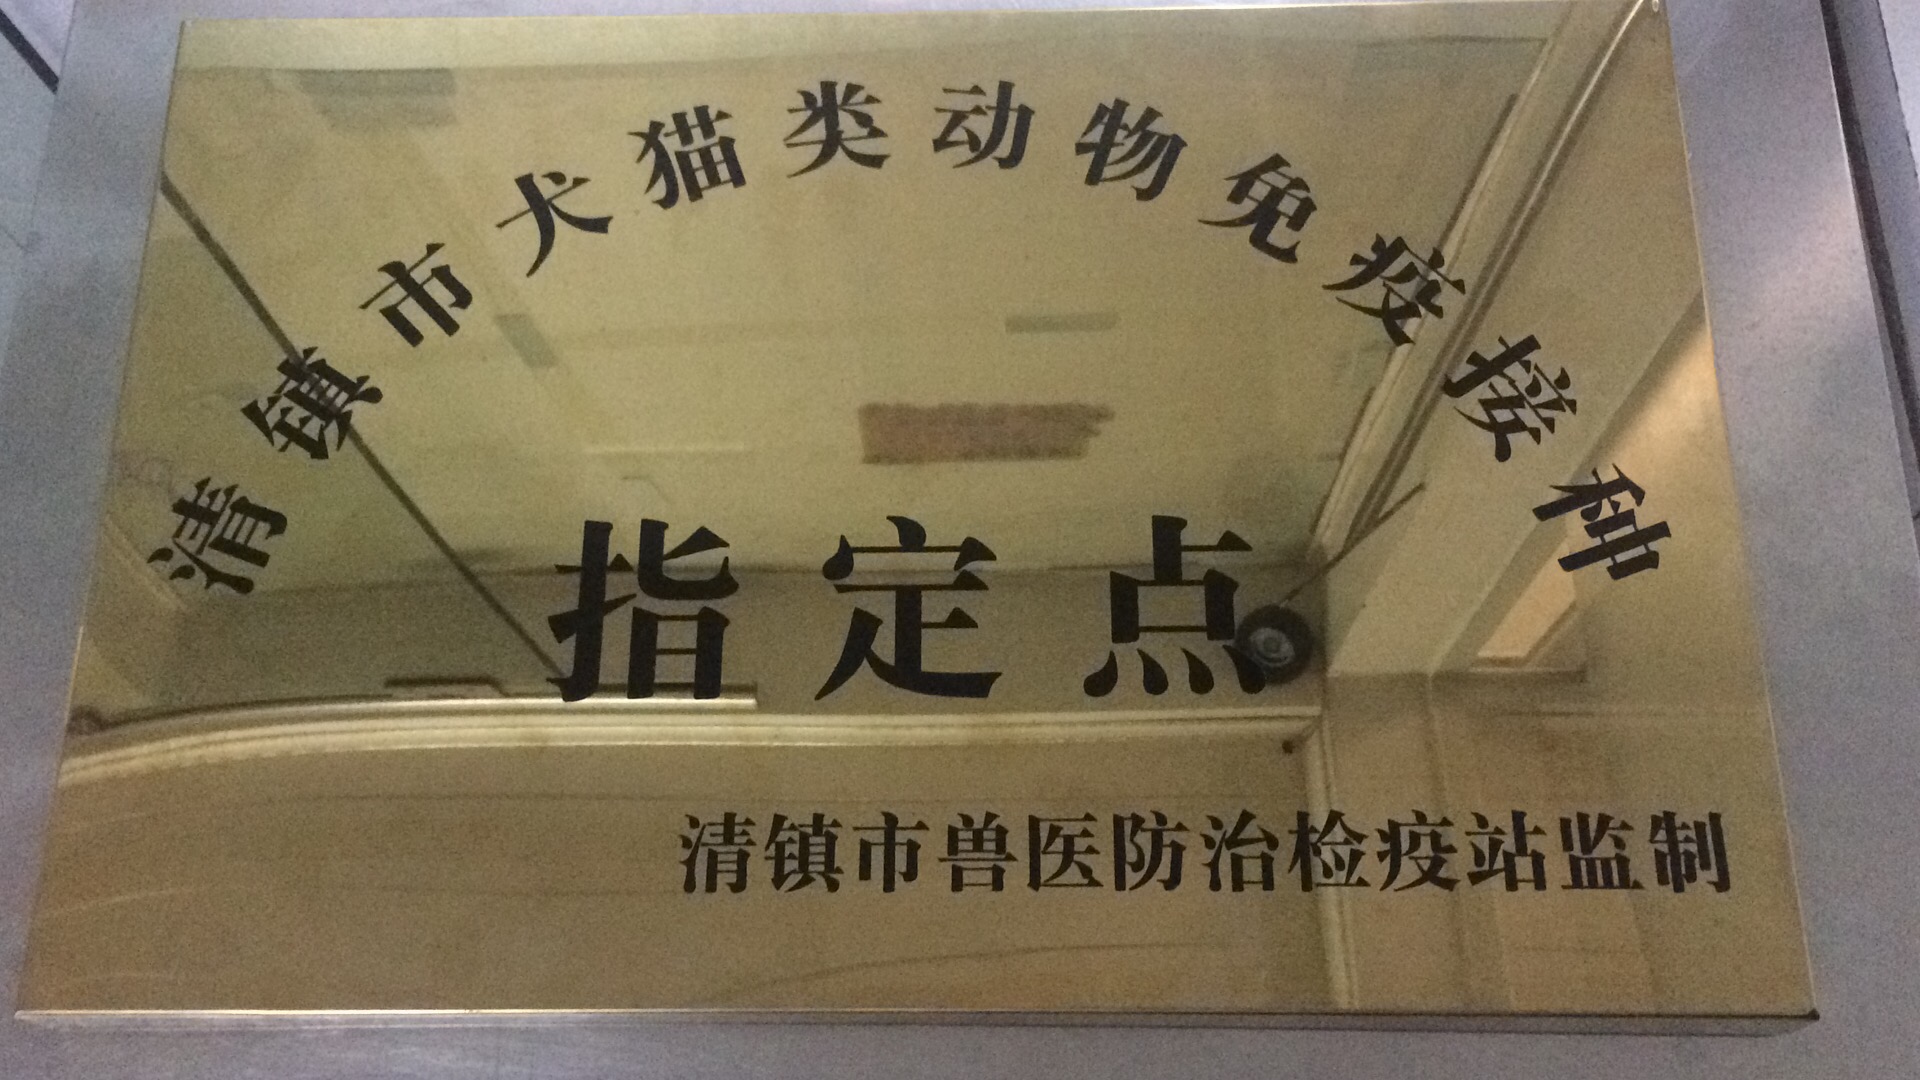 清镇市犬猫类动物免疫接种
指定点
清镇市兽医防治检疫站监制